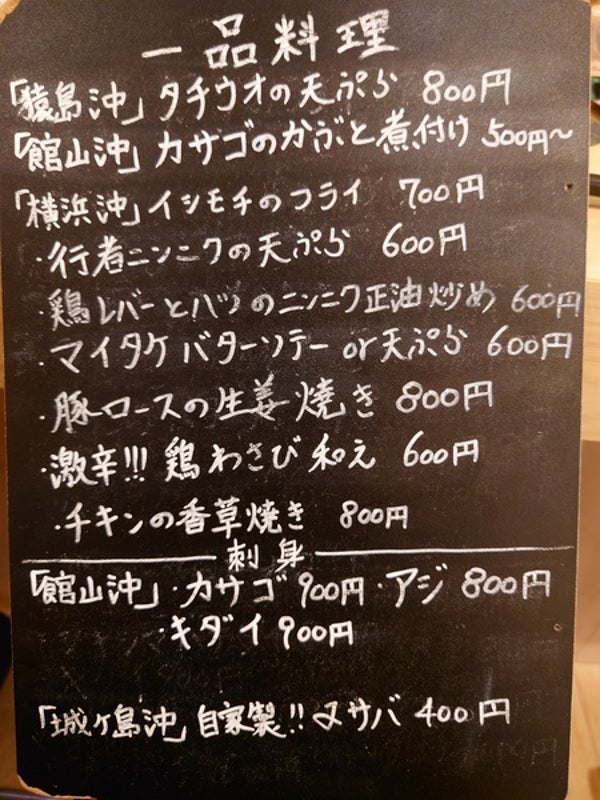 一品料理
「猿島沖」タチウオの天ぷら 800円
「館山沖」カサゴのかぶと煮付け 500円〜
「横浜沖」イシモチのフライ 700円
・行者ニンニクの天ぷら 600円
・鶏レバーとハツのニンニク正油炒め 600円
・マイタケバターソテーor天ぷら 600円
・豚ロースの生姜焼き 800円
・激辛!!! 鶏わさび和え 600円
・チキンの香草焼き 800円
刺身
「館山沖」・カサゴ 900円・アジ 800円
・キダイ 900円
「城ヶ島沖」自家製!! 〆サバ 400円